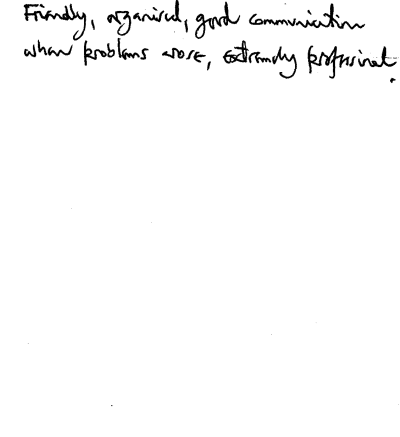 Friendly, organised, good communication
when problems arose, extremely professional.